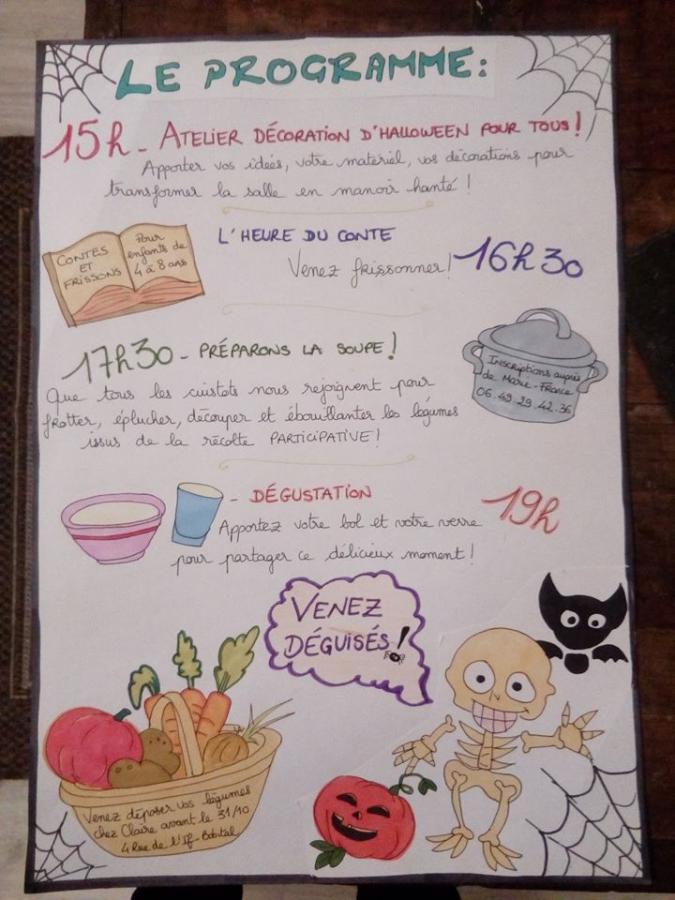 LE PROGRAMME:
15h - ATELIER DÉCORATION D'HALLOWEEN POUR TOUS!
Apporter vos idées, votre matériel, vos décorations pour
transformer la salle en manoir hanté !
L'HEURE DU CONTE
Venez frissonner! 16h30
CONTES
ET
FRISSONS
Pour
enfants de
4 à 8 ans
17h30 - PRÉPARONS LA SOUPE!
Que tous les cuistots nous rejoignent pour
frotter, éplucher, découper et ébouillanter les légumes
issus de la récolte PARTICIPATIVE!
Inscriptions auprès
de Marie-France
06.49.29.42.36
- DÉGUSTATION 19h
Apportez votre bol et votre verre
pour partager ce délicieux moment!
VENEZ
DÉGUISÉS!
Venez déposer vos légumes
chez Claire avant le 31/10
4 Rue de l'If-Bobital